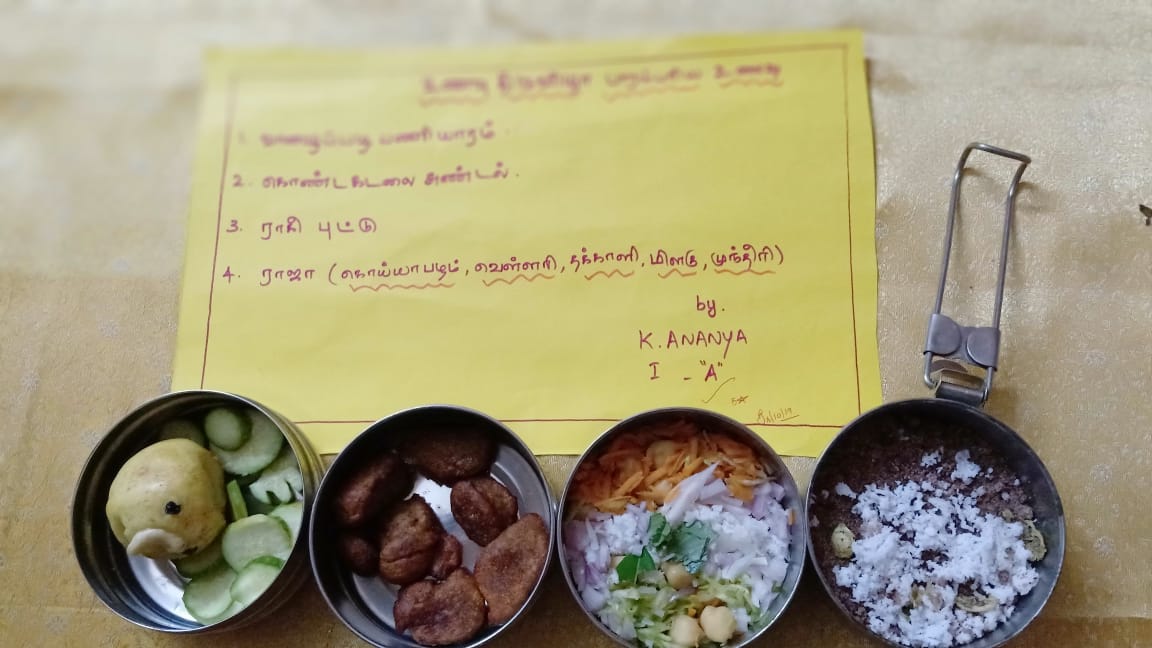 உணவு திருவிழா பாரம்பரிய உணவு
1. வாழைப்பழ பணியாரம்.
2. கொண்டகடலை சுண்டல்.
3. ராகி புட்டு
4. ராஜா (கொய்யாபழம், வெள்ளரி, தக்காளி, மிளகு, முந்திரி)
by.
K. ANANYA
I - "A"